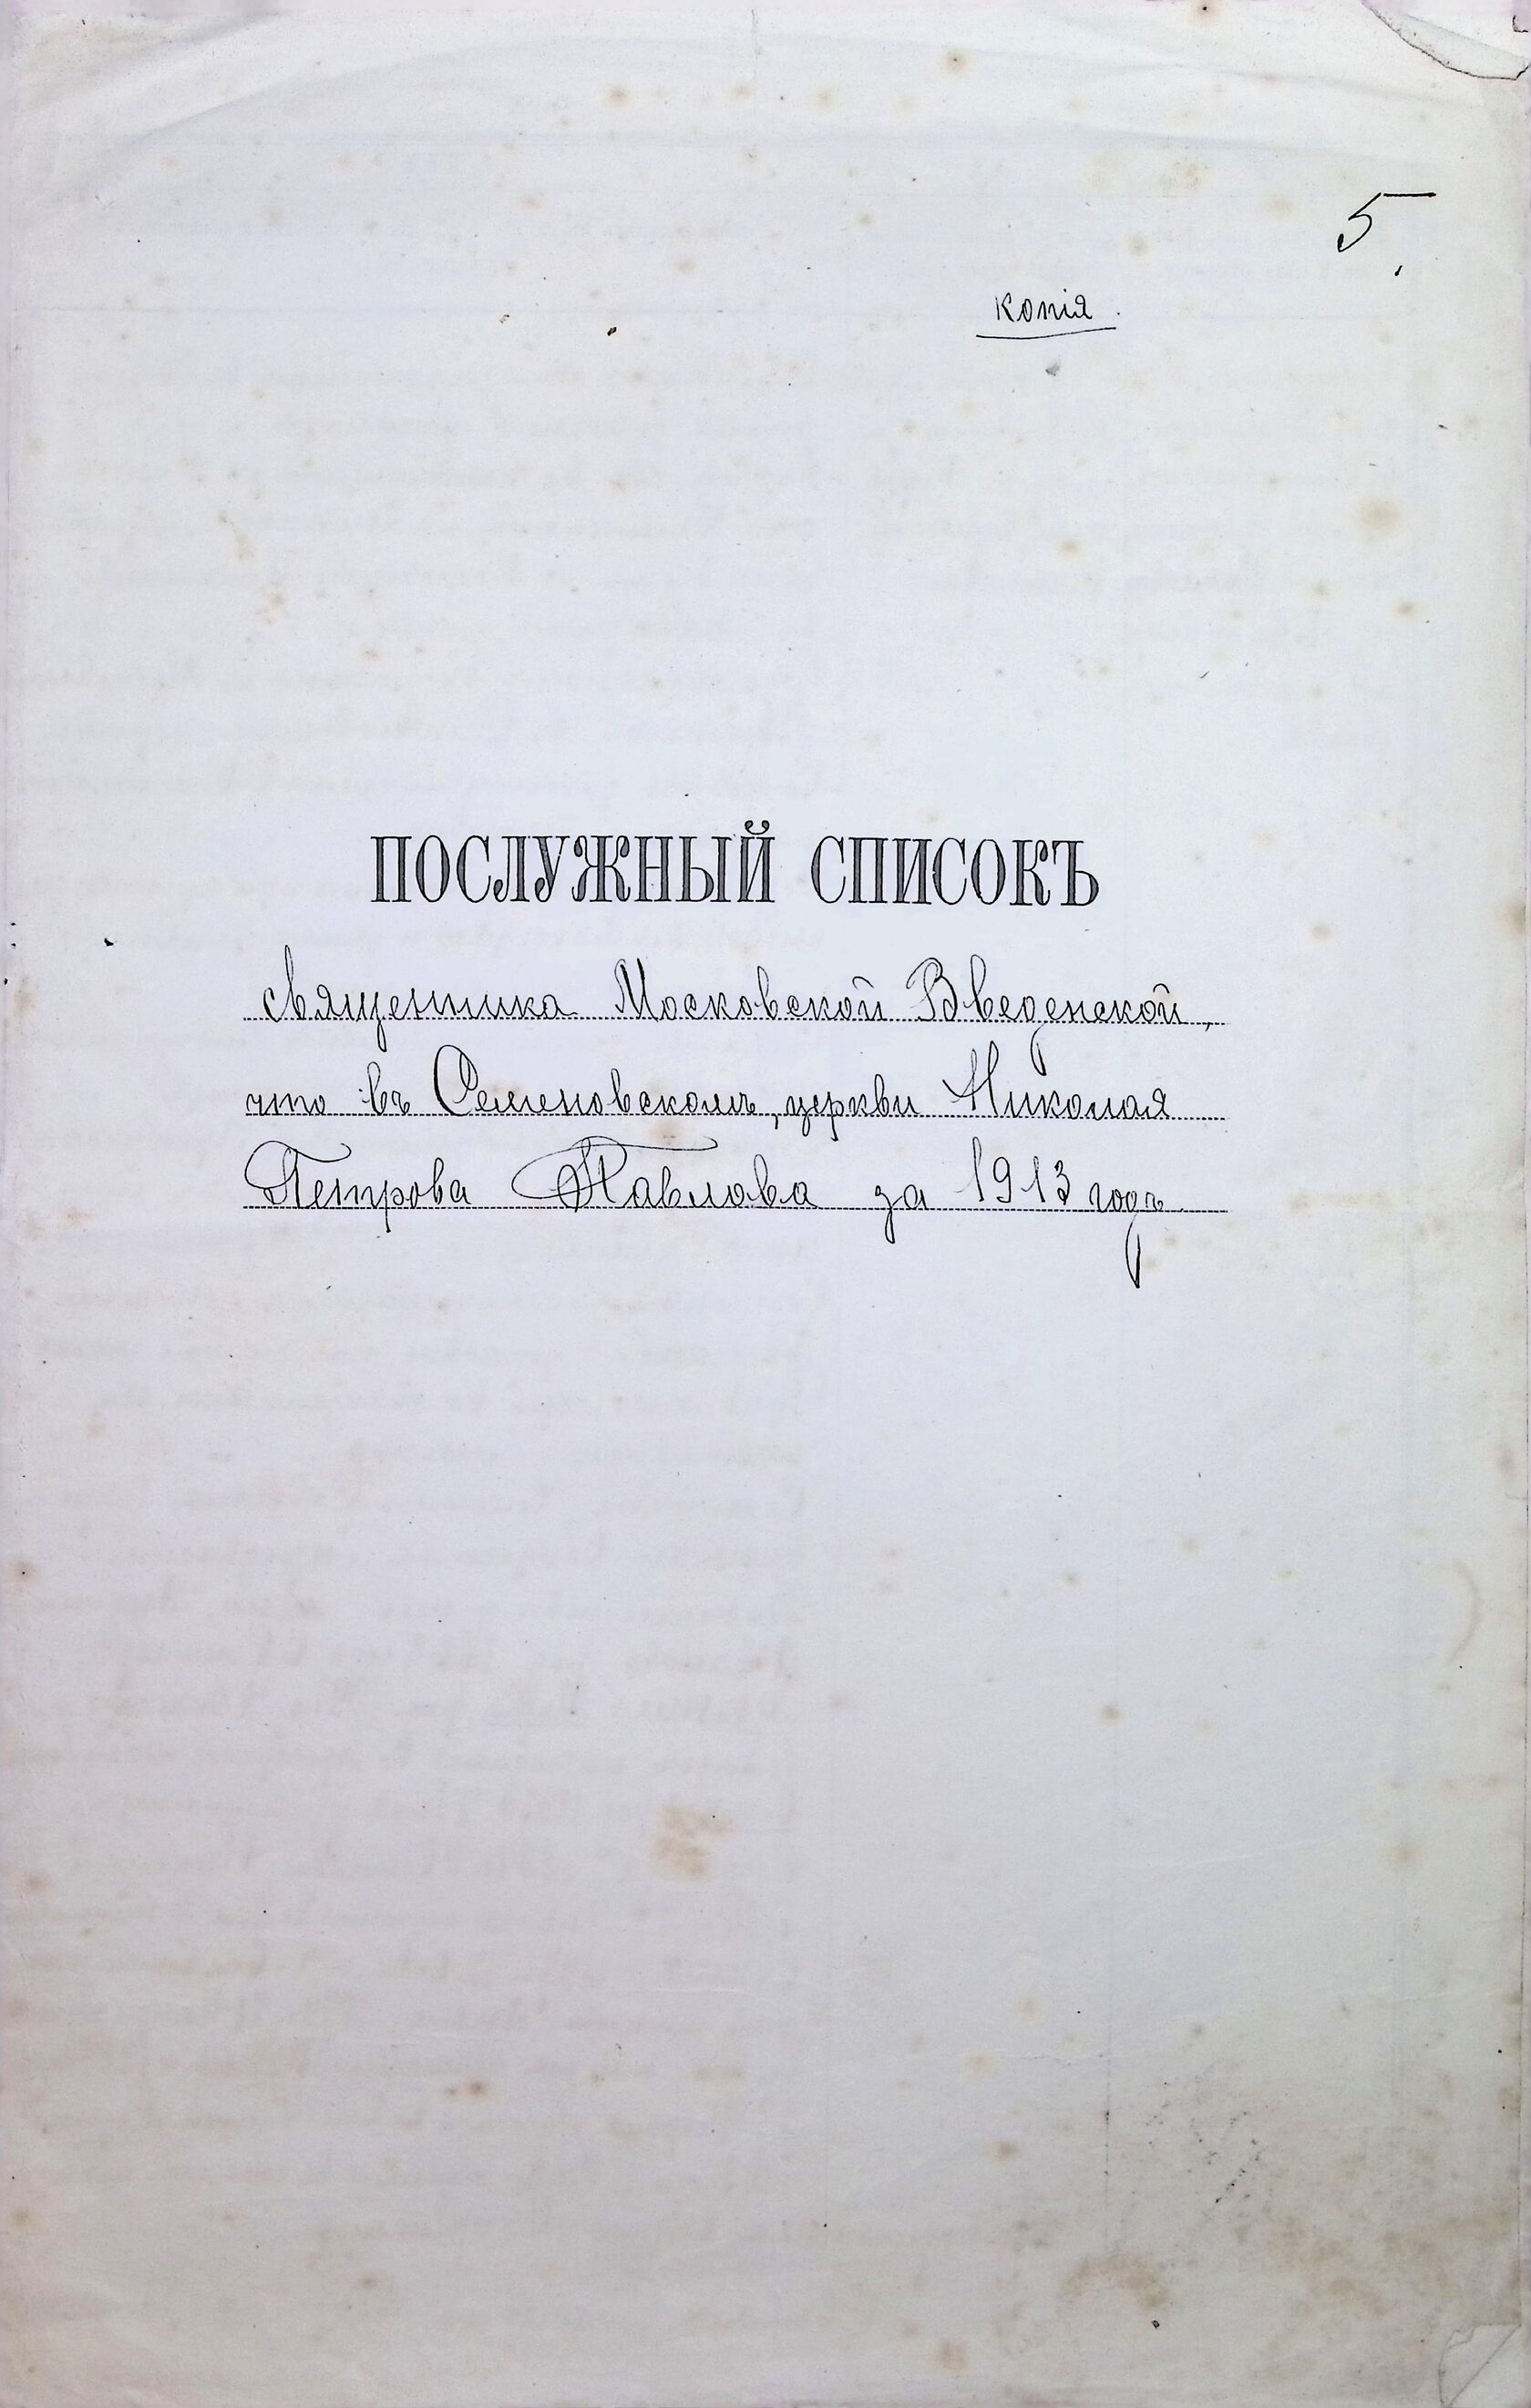 5
копія.
ПОСЛУЖНЫЙ СПИСОКЪ
священника Московской Введенской,
что въ Семеновскомъ, церкви Николая
Петрова Павлова за 1913 годъ.